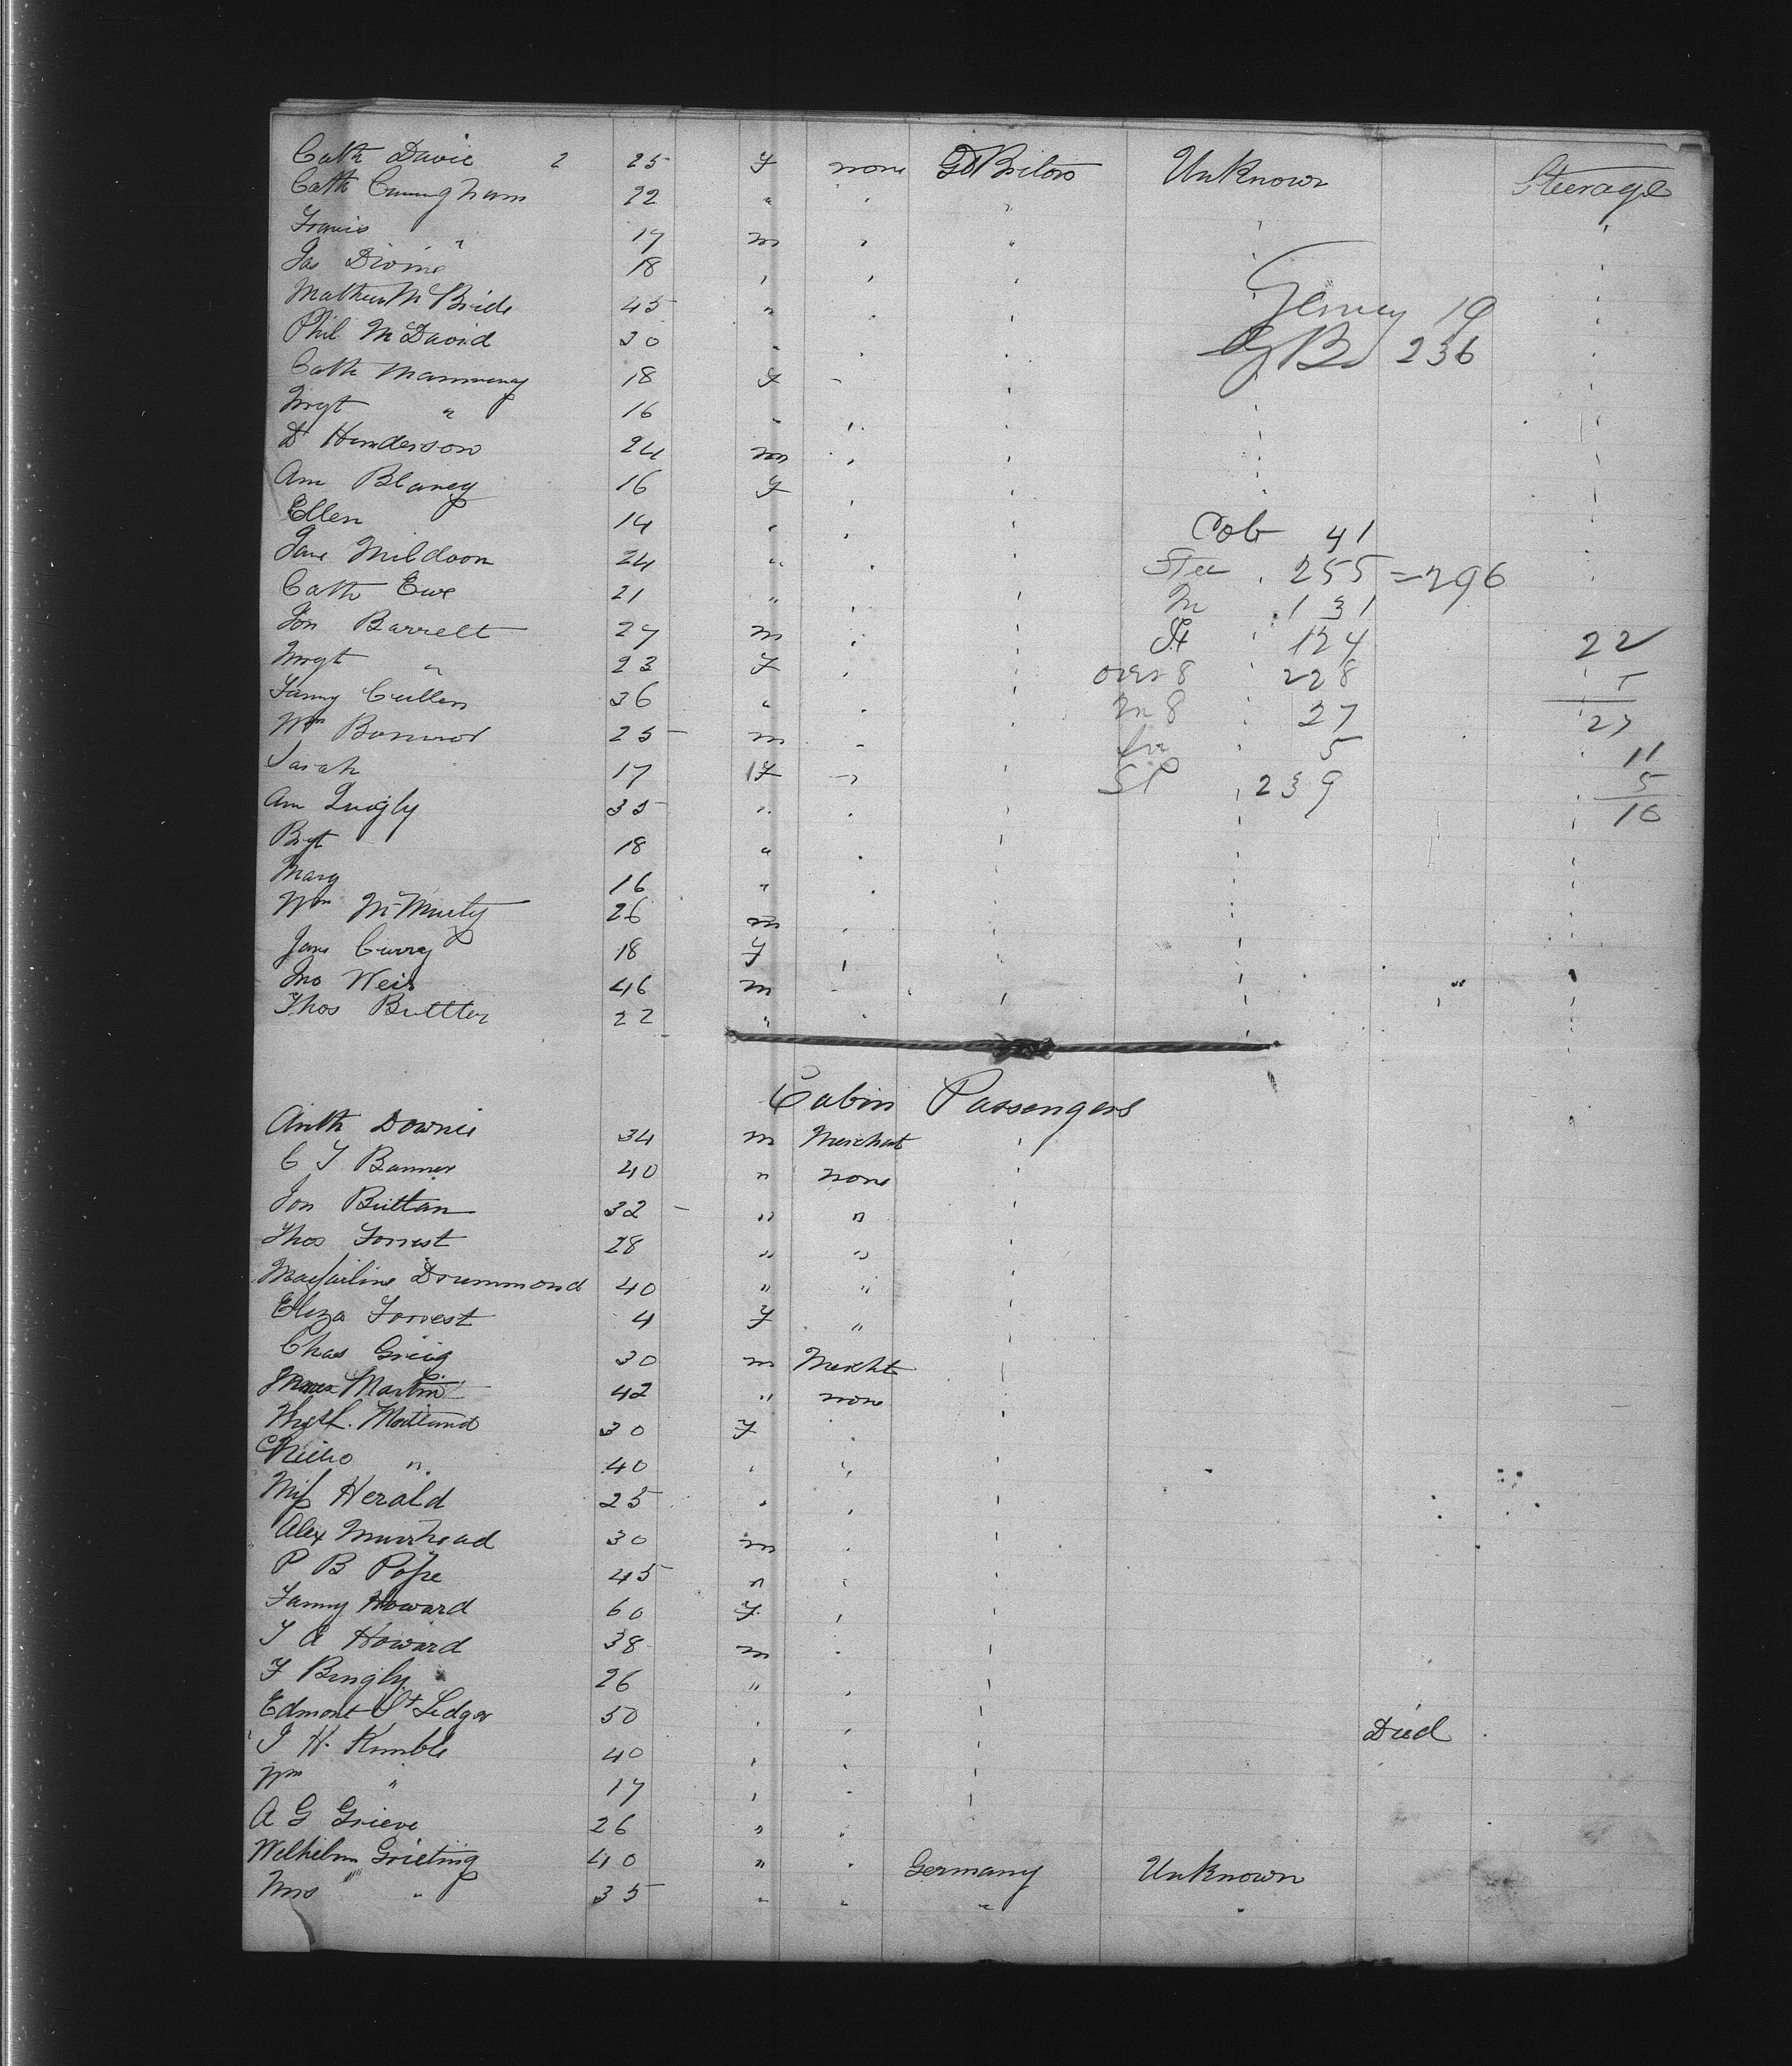 Cath Davie 2 25 F none Gt Britain Unknown Steerage
Cath Cunningham 22 "
Francis " 17 m
Jas Divine 18 "
Mathew McBride 45 "
Phil McDavid 30 "
Cath 18 F
Mrgt " 16 "
D Henderson 24 m
Ann Blaney 16 F
Ellen 14 "
Jane Mildoon 24 "
Cath Ewe 21 "
Jon Barrelt 27 m
Mrgt " 23 F
Fanny Cullen 36 "
Wm 25 m
Sarah 17 F
Ann Quigly 35 "
Brgt 18 "
Mary 16 "
Wm McMurty 26 m
Jane Curry 18 F
Jno Weir 46 m
Thos Buttler 22 "
Gemey 19
GB 236
Cob 41
Stee 255 = 296
M 131
F 124
over 8 228
Un 8 27
Inf 5
SP 239
22
5
27
11
5
16
Cabin Passengers
Anth Downie 34 m Merchat
C T Banner 40 " none
Jon Brittan 32 " "
Thos Forrest 28 " "
Drummond 40 " "
Eliza Forrest 4 F "
Chas Greig 30 m Mercht
Martin 42 " none
Maitland 30 F
" 40
Miss Herald 25
Alex Muirhead 30 m
P B Pope 45 "
Fanny Howard 60 F
T A Howard 38 m
F Bingly 26 "
Edmont St Ledger 50 Died
J H Kimble 40
Wm " 17
A G Grieve 26 "
Welhelm Grieting 40 " Germany Unknown
Mrs " 35 " " "